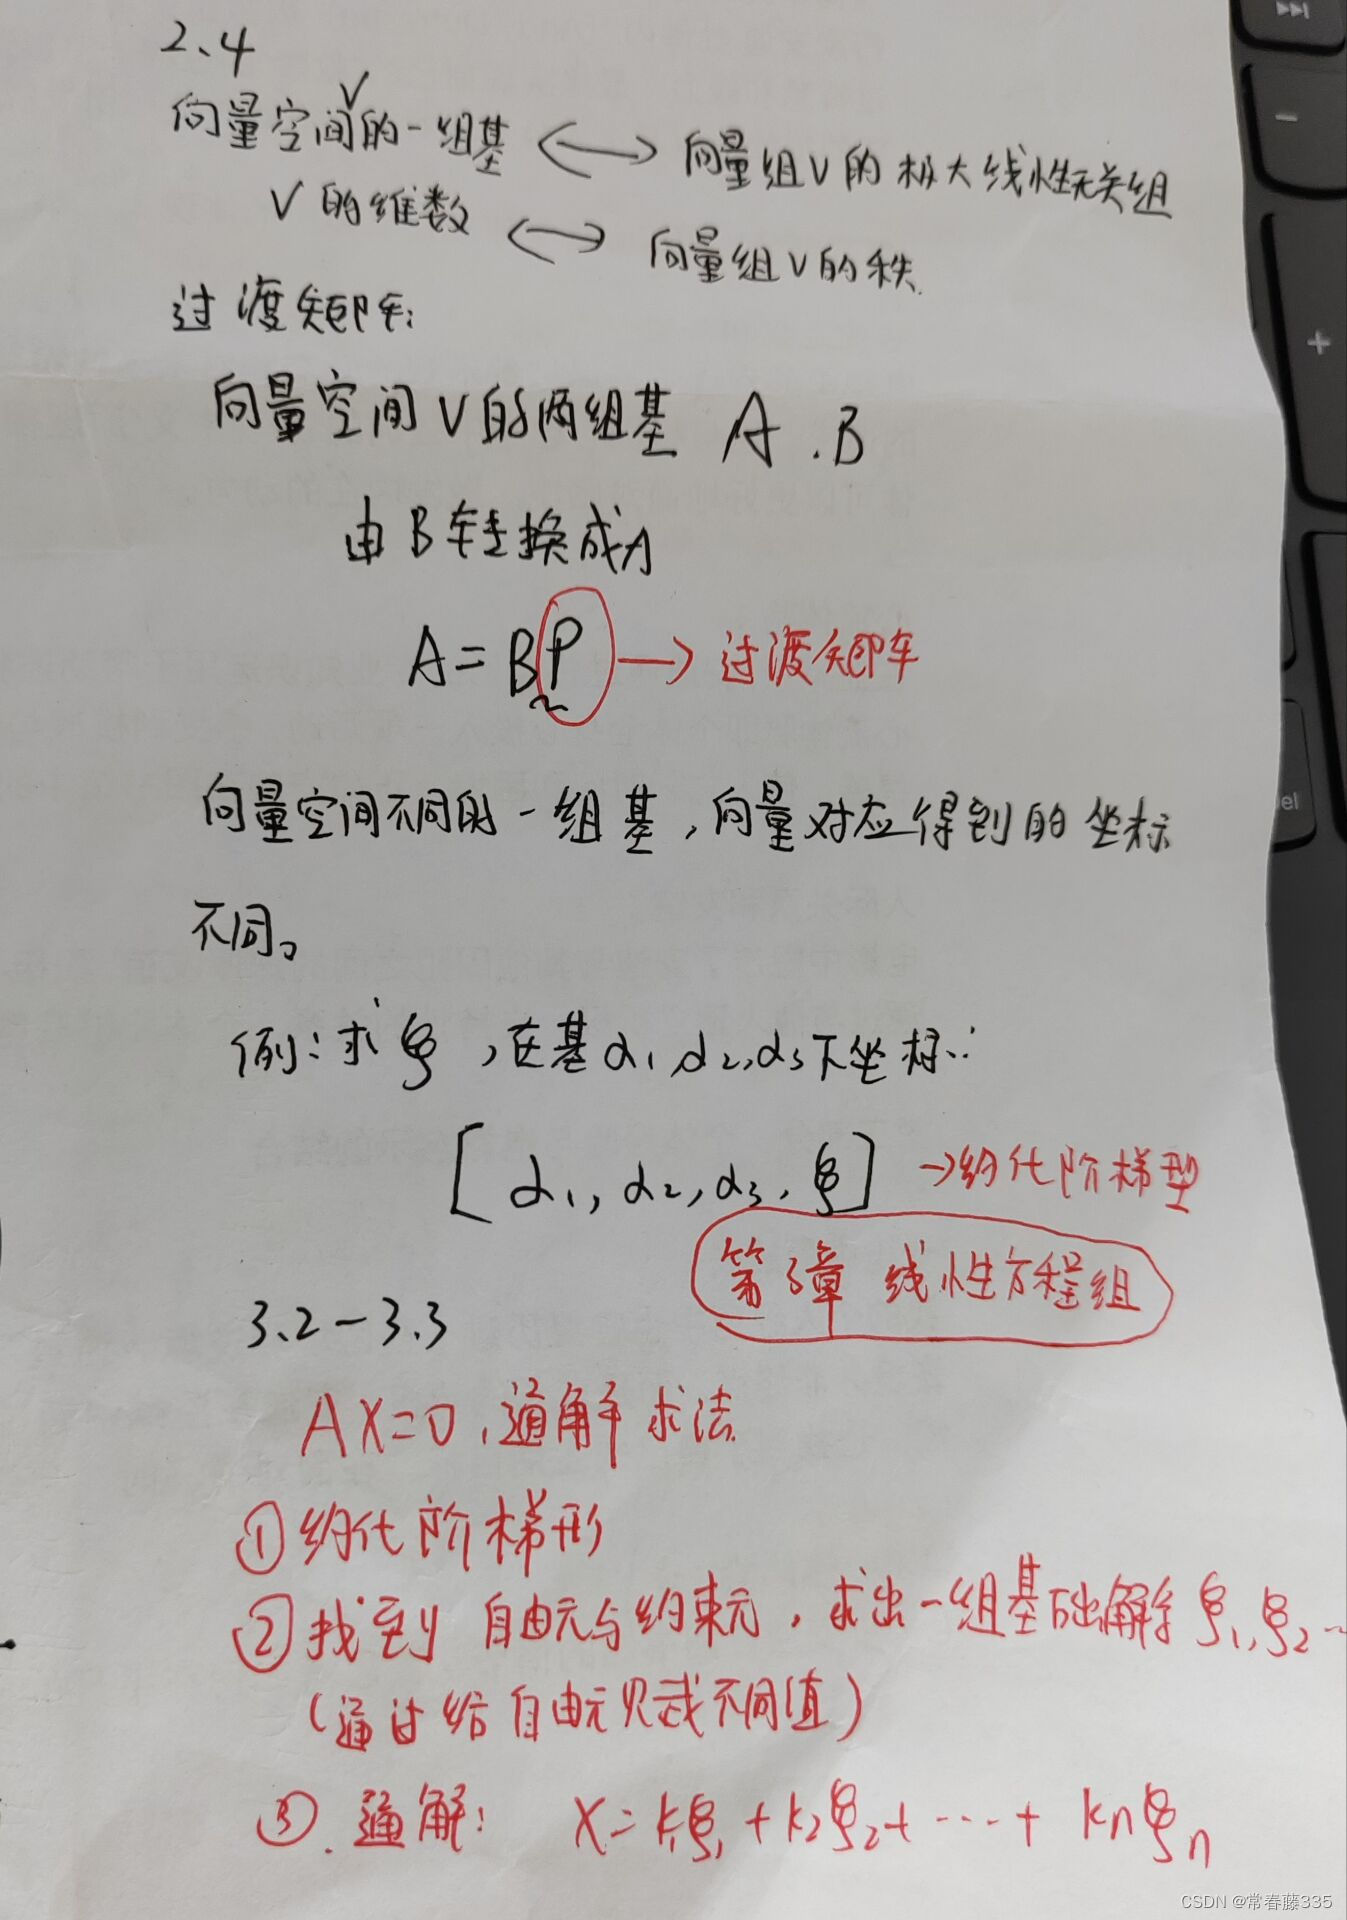 2、4
向量空间V的一组基 <—> 向量组V的极大线性无关组
V的维数 <—> 向量组V的秩.
过渡矩阵:
向量空间V的两组基 A.B
由B转换成A
A=BP → 过渡矩阵
向量空间不同的一组基,向量对应得到的坐标
不同。
例:求ξ,在基α1,α2,α3下坐标:
[α1,α2,α3,ξ] →约化阶梯型
第3章 线性方程组
3.2-3.3
AX=0,通解求法
①约化阶梯形
②找到自由元与约束元,求出一组基础解系ξ1,ξ2…
(通过给自由元赋不同值)
③.通解: X=k1ξ1+k2ξ2+…+knξn
del
CSDN @常春藤335